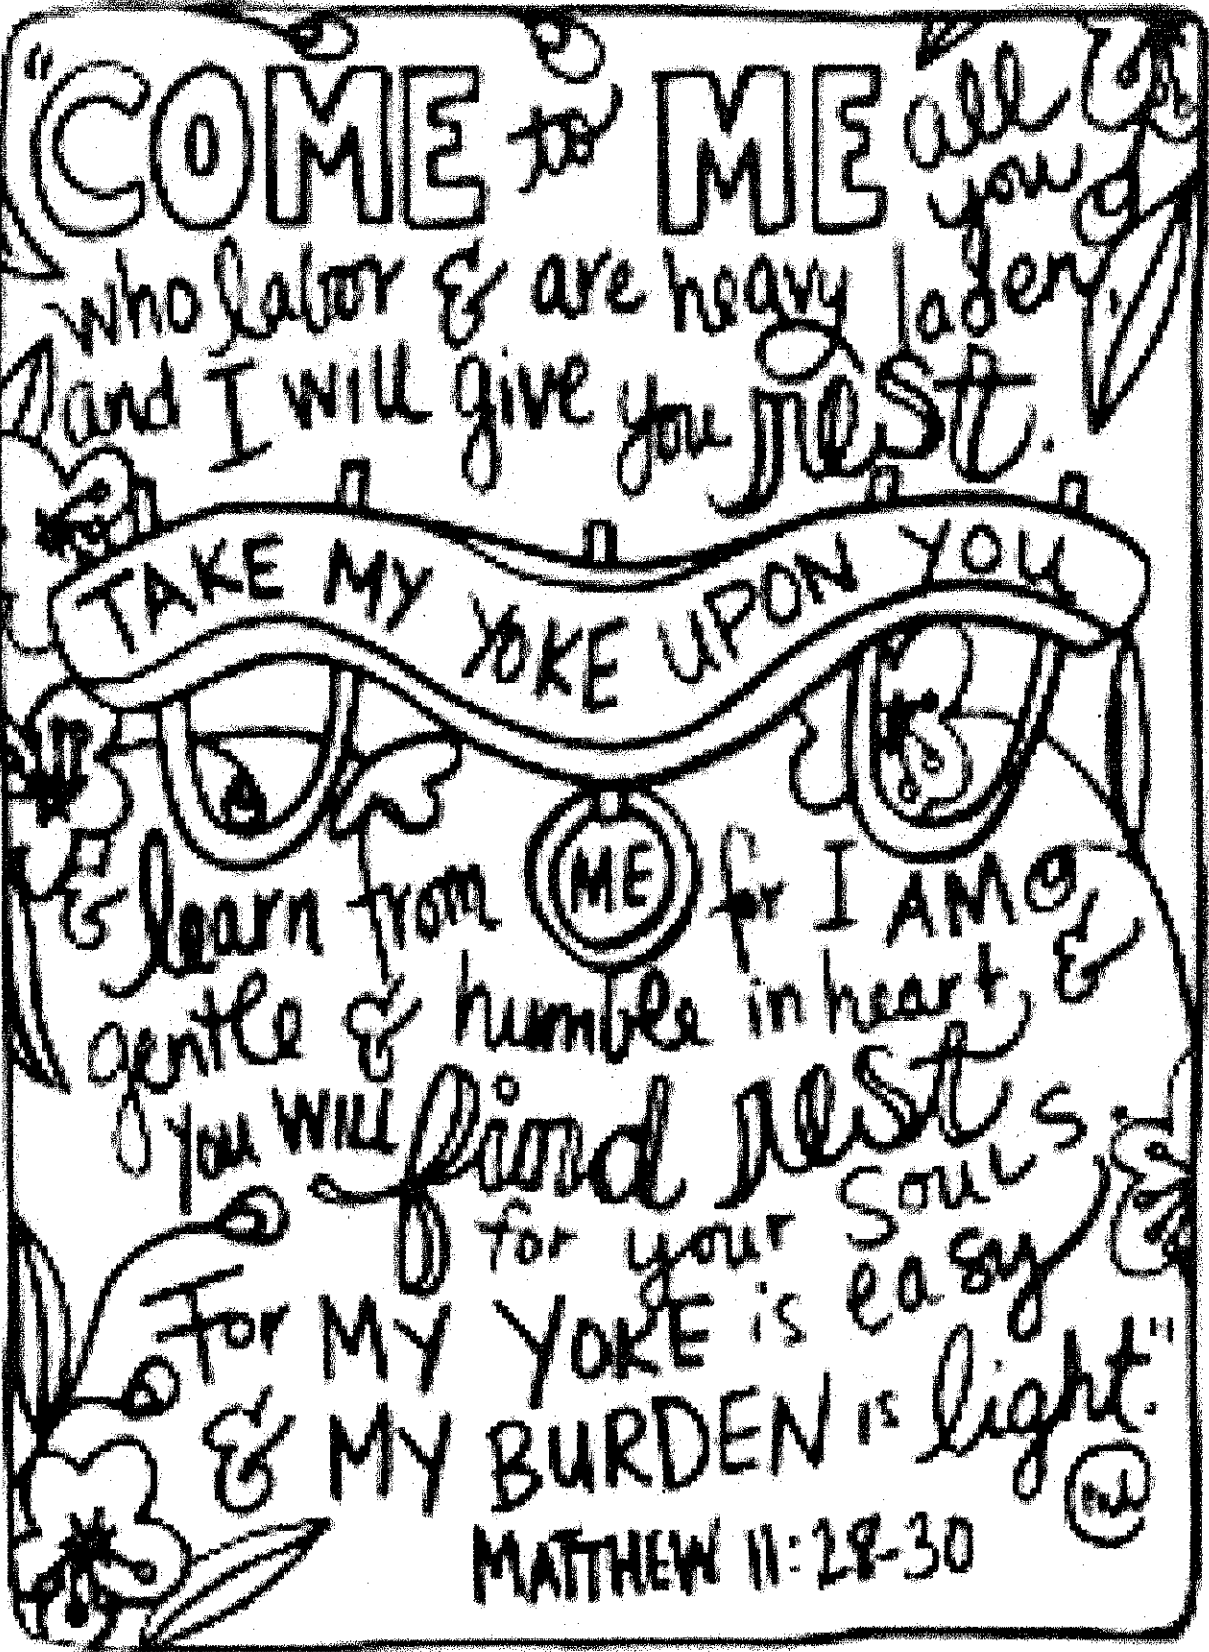 "COME to ME all
you
who labor & are heavy laden,
and I will give you rest.
TAKE MY YOKE UPON YOU
& learn from ME for I AM
gentle & humble in heart &
you will find rest
for your souls.
For MY YOKE is easy
& MY BURDEN is light."
MATTHEW 11:28-30